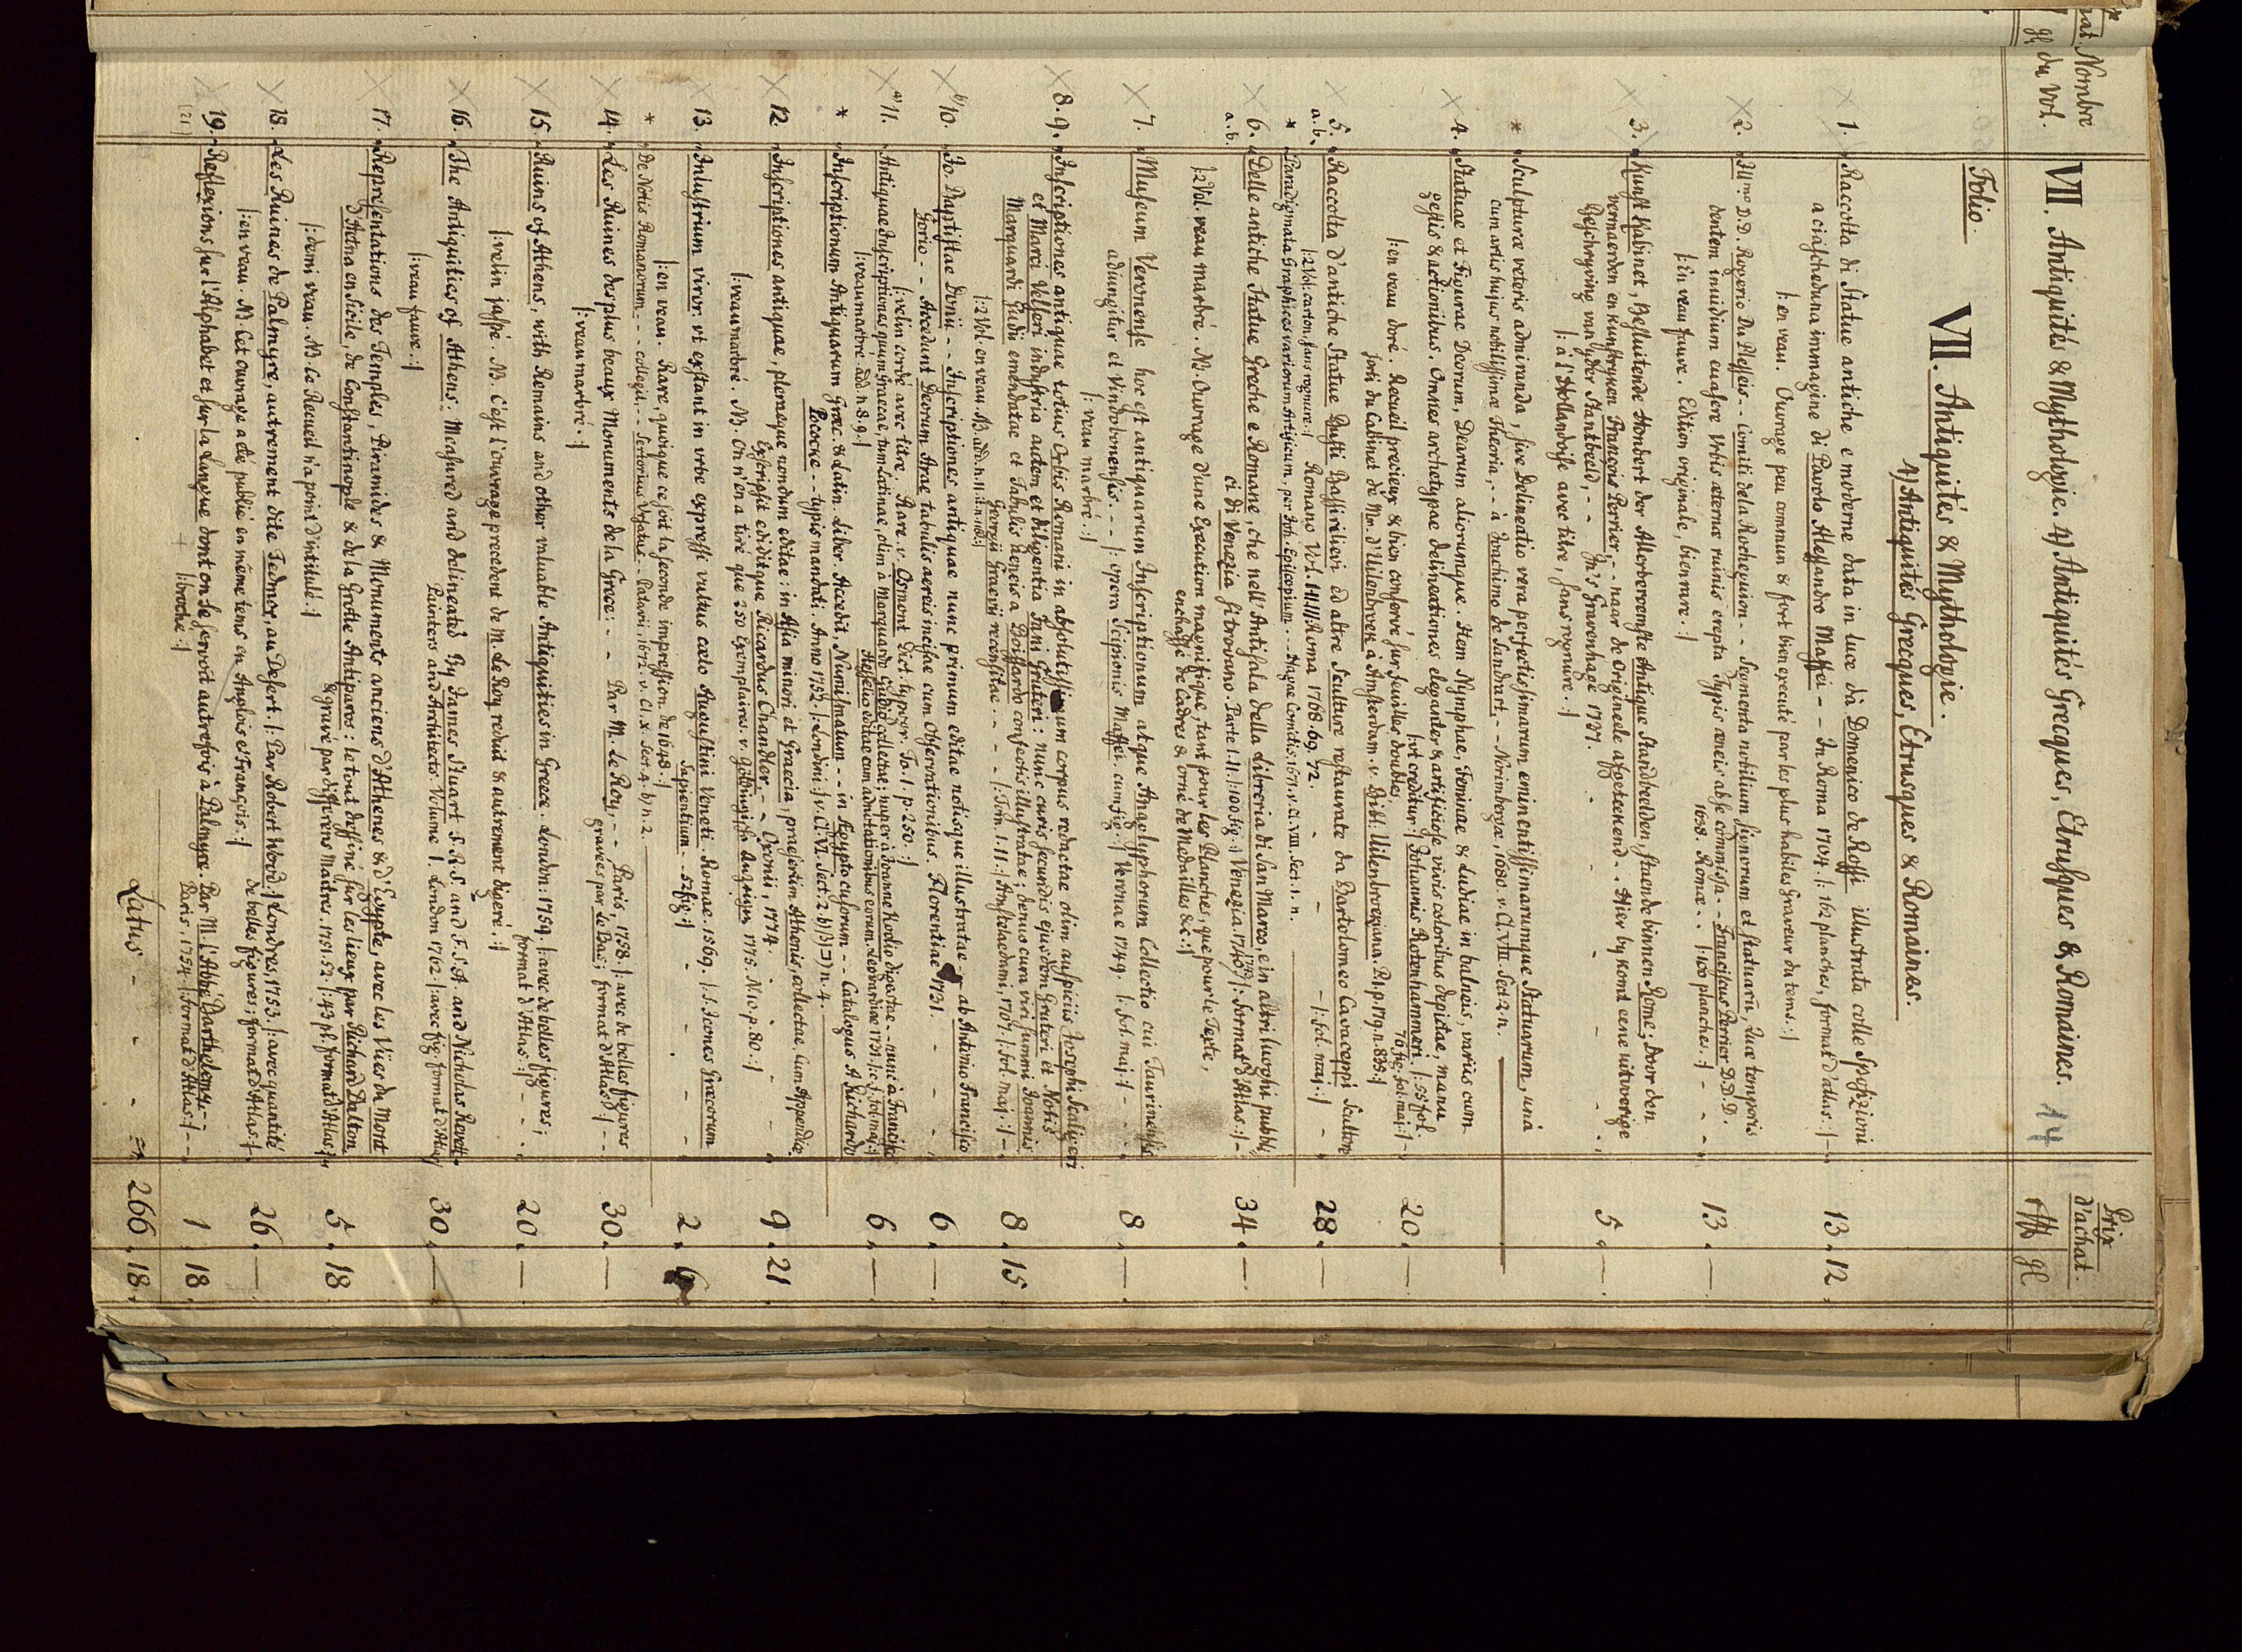 Nombre
du vol.
VII. Antiquités & Mythologie. A) Antiquités Grecques, Etrusques & Romaines. 14
Prix
d'achat.
VII. Antiquités & Mythologie.
A) Antiquités Grecques, Etrusques & Romaines.
Folio.
1. Raccolta di Statue antiche e moderne data in luce dà Domenico de Rossi illustrata colle Sposizioni
a ciascheduna immagine di Pavolo Alessandro Maffei - - In Roma 1704. /: 162 planches, format d'atlas :/ - 13. 12.
/: en veau. Ouvrage peu commun & fort bien executé par les plus habiles Graveur du tems. :/
2. Illmo D. D. Rogerio Du Plesseis - - Comiti de la Rocheguion - - Segmenta nobilium signorum et statuarū, Quæ temporis
dentem inuidium euasere Urbis æternæ ruinis erepta Typis æneis abse commissa - - Franciscus Perrier D.D.D.
1638. Romæ. - /: 100 planches. :/ - - 13. —
/: En veau fauve. Edition originale, bien rare. :/
3. Kunst Kabinet, Besluitende Hondert der Alterberoemste Antique Standbeelden, staende binnen Rome; Door den
vermaerden en kunstryken François Perrier, - - naar de Origineele afgeteekend. - Hier by komt eene uitvoerige
Beschryving van yder Standbeeld, - - In 's Gravenhage 1737. - - - - 5. —
/: à l'Hollandoise avec titre, sans rognure. :/
* Sculpturæ veteris admiranda, sive Delineatio vera perfectissimarum eminentissimarumque Statuarum, unà
cum artis hujus nobilissimæ Theoria, - - à Joachimo de Sandrart, - - Norimbergæ, 1680. v. Cl. VIII. Sect. 2. n.
4. Statuae et Figurae Deorum, Dearum aliorumque. Item Nymphae, Feminae & Ludiae in balneis, variis cum
gestis & actionibus. Omnes archetypae delineationes eleganter & artificiose vivis coloribus depictae, manu
/: vt creditur :/ Johannis Rotenhammeri /: 55 fol.
76 fig. fol. maj. :/ - 20. —
/: en veau doré. Recueil precieux & bien conservé sur feuilles doubles,
sorti du Cabinet de Mm. d'Uilenbroek à Amsterdam. v. Bibl. Uilenbroekiana. P.I. p. 179. n. 833. :/
5. a. b. Raccolta d'antiche Statue Busti Bassirilievi ed altre Sculture restaurate da Bartolomeo Cavaceppi Scultore
Romano Vol. I. II. III. Roma 1768. 69. 72. - - - /: fol. maj. :/ - 28. —
/: 2 Vol. carton sans rognure. :/
* Paradigmata Graphices variorum Artificum, per Joh. Episcopium - - Hagae Comitis, 1671. v. Cl. VIII. Sect. 1. n.
6. a. b. Delle antiche Statue Greche e Romane, che nell'Antisala della Libreria di San Marco, e in altri luoghi pubbli,
ci di Venezia si trovano. Parte I. II. /: 100 fig. :/ Venezia. 1740. 1743 /: format d'Atlas. :/ - 34. —
/: 2 Vol. veau marbré. N. Ouvrage d'une Execution magnifique, tant pour les Planches, que pour le Texte,
enchassé de Cadres & orné de Medailles &c. :/
7. Museum Veronense hoc est antiquarum Inscriptionum atque Anaglyphorum Collectio cui Taurinensis
adiungitur et Vindobonensis. - - /: opera Scipionis Maffei, cum fig. :/ Veronae 1749. /: fol. maj. :/ - - 8. —
/: veau marbré. :/
8. 9. Inscriptiones antiquae totius Orbis Romani in absolutissimum corpus redactae olim auspiciis Josephi Scaligeri
et Marci Velseri industria autem et diligentia Jani Gruteri: nunc curis secundis ejusdem Gruteri et Notis
Marquardi Gudii emendatae et Tabulis aeneis a Boissardo confectis illustratae; denuo cura viri summi Joannis
Georgii Graevii recensitae. - - - /: Tom. I. II. :/ Amstelaedami, 1707. /: fol. maj. :/ - 8. 15.
/: 2 Vol. en veau. N. add. n. 11. it. n. 118. :/
b) 10. Jo. Baptistae Donii - - Inscriptiones antiquae nunc primum editae notisque illustratae - ab Antonio Francisco
Gorio - - Accedunt Deorum Arae tabulis aereis incisae cum Observationibus. Florentiae 1731. - - - 6. —
/: velin cordé avec titre. Rare. v. Osmont Dict. typogr. To. I. p. 250. :/
a) 11. Antiquae Inscriptiones quum Graecae, tum Latinae, olim à Marquardo Gudio collectae; nuper à Joanne Koolio digestae - nunc à Francisco
Hesselio editae cum adnotationibus eorum. Leovardiae 1731. /: c. f. fol. maj. :/ 6. —
/: veau marbré. add. n. 8. 9. :/
* Inscriptionum Antiquarum Græc. & Latin. Liber. Accedit, Numismatum - - in Aegypto cusorum - - Catalogus A Richardo
Pococke - - typis mandati. Anno 1752. /: Londini :/ v. Cl. VI. Sect. 2. b) n. 4.
12. Inscriptiones antiquae, pleraeque nondum editae: in Asia minori et Graecia, praesertim Athenis, collectae. Cum Appendice.
Exscripsit ediditque Ricardus Chandler. - - Oxonii, 1774. - - - 9. 21.
/: veau marbré. N. On n'en a tiré que 250 Exemplaires. v. Götting. Anzeigen 1775. N. 10. p. 80. :/
13. Inlustrium viror. vt exstant in vrbe expressi vultus cælo Augustini Veneti. Romae. 1569. /: S. Icones Græcorum
Sapientium - - 52 fig. :/ - - - 2. 6.
/: en veau. Rare, quoique ce soit la seconde impression de 1648. :/
* De Notis Romanorum - - collegit - - Sertorius Vrsatus - - Patavii, 1672. v. Cl. X. Sect. 4. b) n. 2.
14. Les Ruines des plus beaux Monuments de la Grece: - - Par M. Le Roy, - - Paris, 1758. /: avec de belles figures
gravés par Le Bas; format d'Atlas. :/ - - 30. —
/: veau marbré. :/
15. Ruins of Athens, with Remains and other valuable Antiquities in Greece. London: 1759. /: avec de belles figures;
format d'Atlas. :/ - - 20. —
/: velin jaspé. N. C'est l'ouvrage precedent de M. Le Roy reduit & autrement digeré. :/
16. The Antiquities of Athens: Measured and delineated By James Stuart F. R. S. and F. S. A. and Nicholas Revett,
Painters and Architects. Volume I. London 1762. /: avec fig. format d'Atlas 30. —
/: veau fauve. :/
17. Representations des Temples, Piramides & Monuments anciens d'Athenes & d'Egypte, avec les Vües du Mont
d'Aetna en Sicile, de Constantinople & de la Grotte Antiparos: le tout dessiné sur les lieux par Richard Dalton,
& gravé par differens Maitres. 1751. 52. /: 43 pl. format d'Atlas. :/ 5. 18.
/: demi veau. N. Ce Recueil n'a point d'intitulé. :/
18. Les Ruines de Palmyre, autrement dite Tedmor, au Desert. /: Par Robert Wood. :/ Londres, 1753. /: avec quantité
de belles figures; format d'Atlas. :/ 26. —
/: en veau. N. Cet ouvrage a été publié en même tems en Anglois et François. :/
19. Reflexions sur l'Alphabet et sur la Langue dont on se servoit autrefois à Palmyre. Par M. l'Abbé Barthelemy. -
(21) Paris, 1754. /: format d'Atlas. :/ - - 1. 18.
/: broché. :/
Latus - - - = 266. 18.